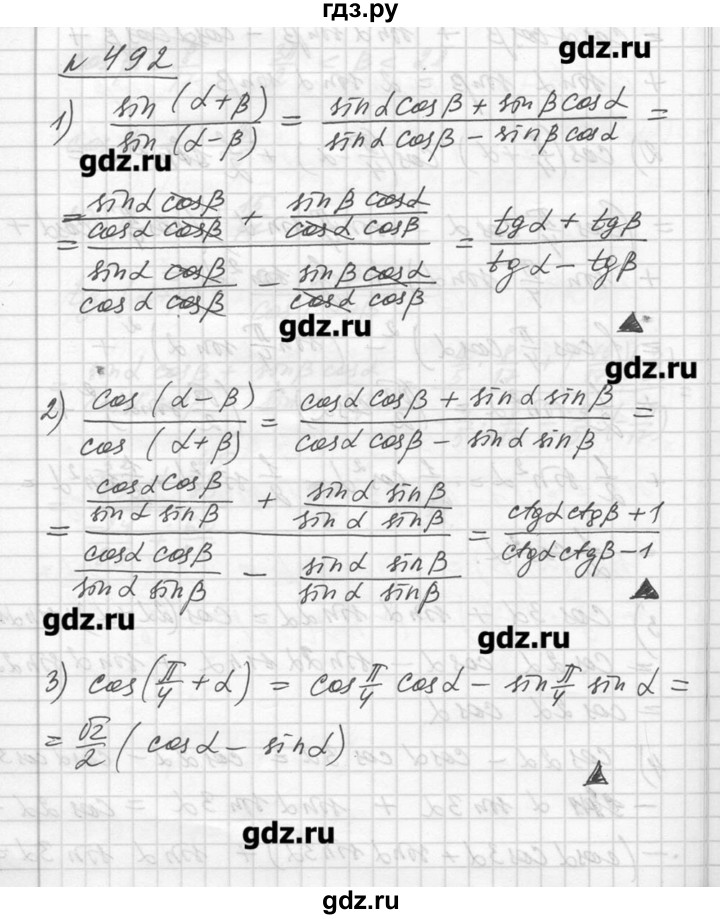 гдз.ру
gdz.ru
№ 492
1) sin (α+β) / sin (α−β) = (sinα cosβ + sinβ cosα) / (sinα cosβ − sinβ cosα) =
gdz.ru
= (sinα cosβ / cosα cosβ + sinβ cosα / cosα cosβ) / (sinα cosβ / cosα cosβ − sinβ cosα / cosα cosβ) = (tgα + tgβ) / (tgα − tgβ)
gdz.ru
▲
gdz.ru
2) cos (α−β) / cos (α+β) = (cosα cosβ + sinα sinβ) / (cosα cosβ − sinα sinβ) =
= (cosα cosβ / sinα sinβ + sinα sinβ / sinα sinβ) / (cosα cosβ / sinα sinβ − sinα sinβ / sinα sinβ) = (ctgα ctgβ + 1) / (ctgα ctgβ − 1)
▲
gdz.ru
gdz.ru
3) cos(π/4 + α) = cos π/4 cosα − sin π/4 sin α =
= √2/2 ( cosα − sinα)
▲
gdz.ru
gdz.ru